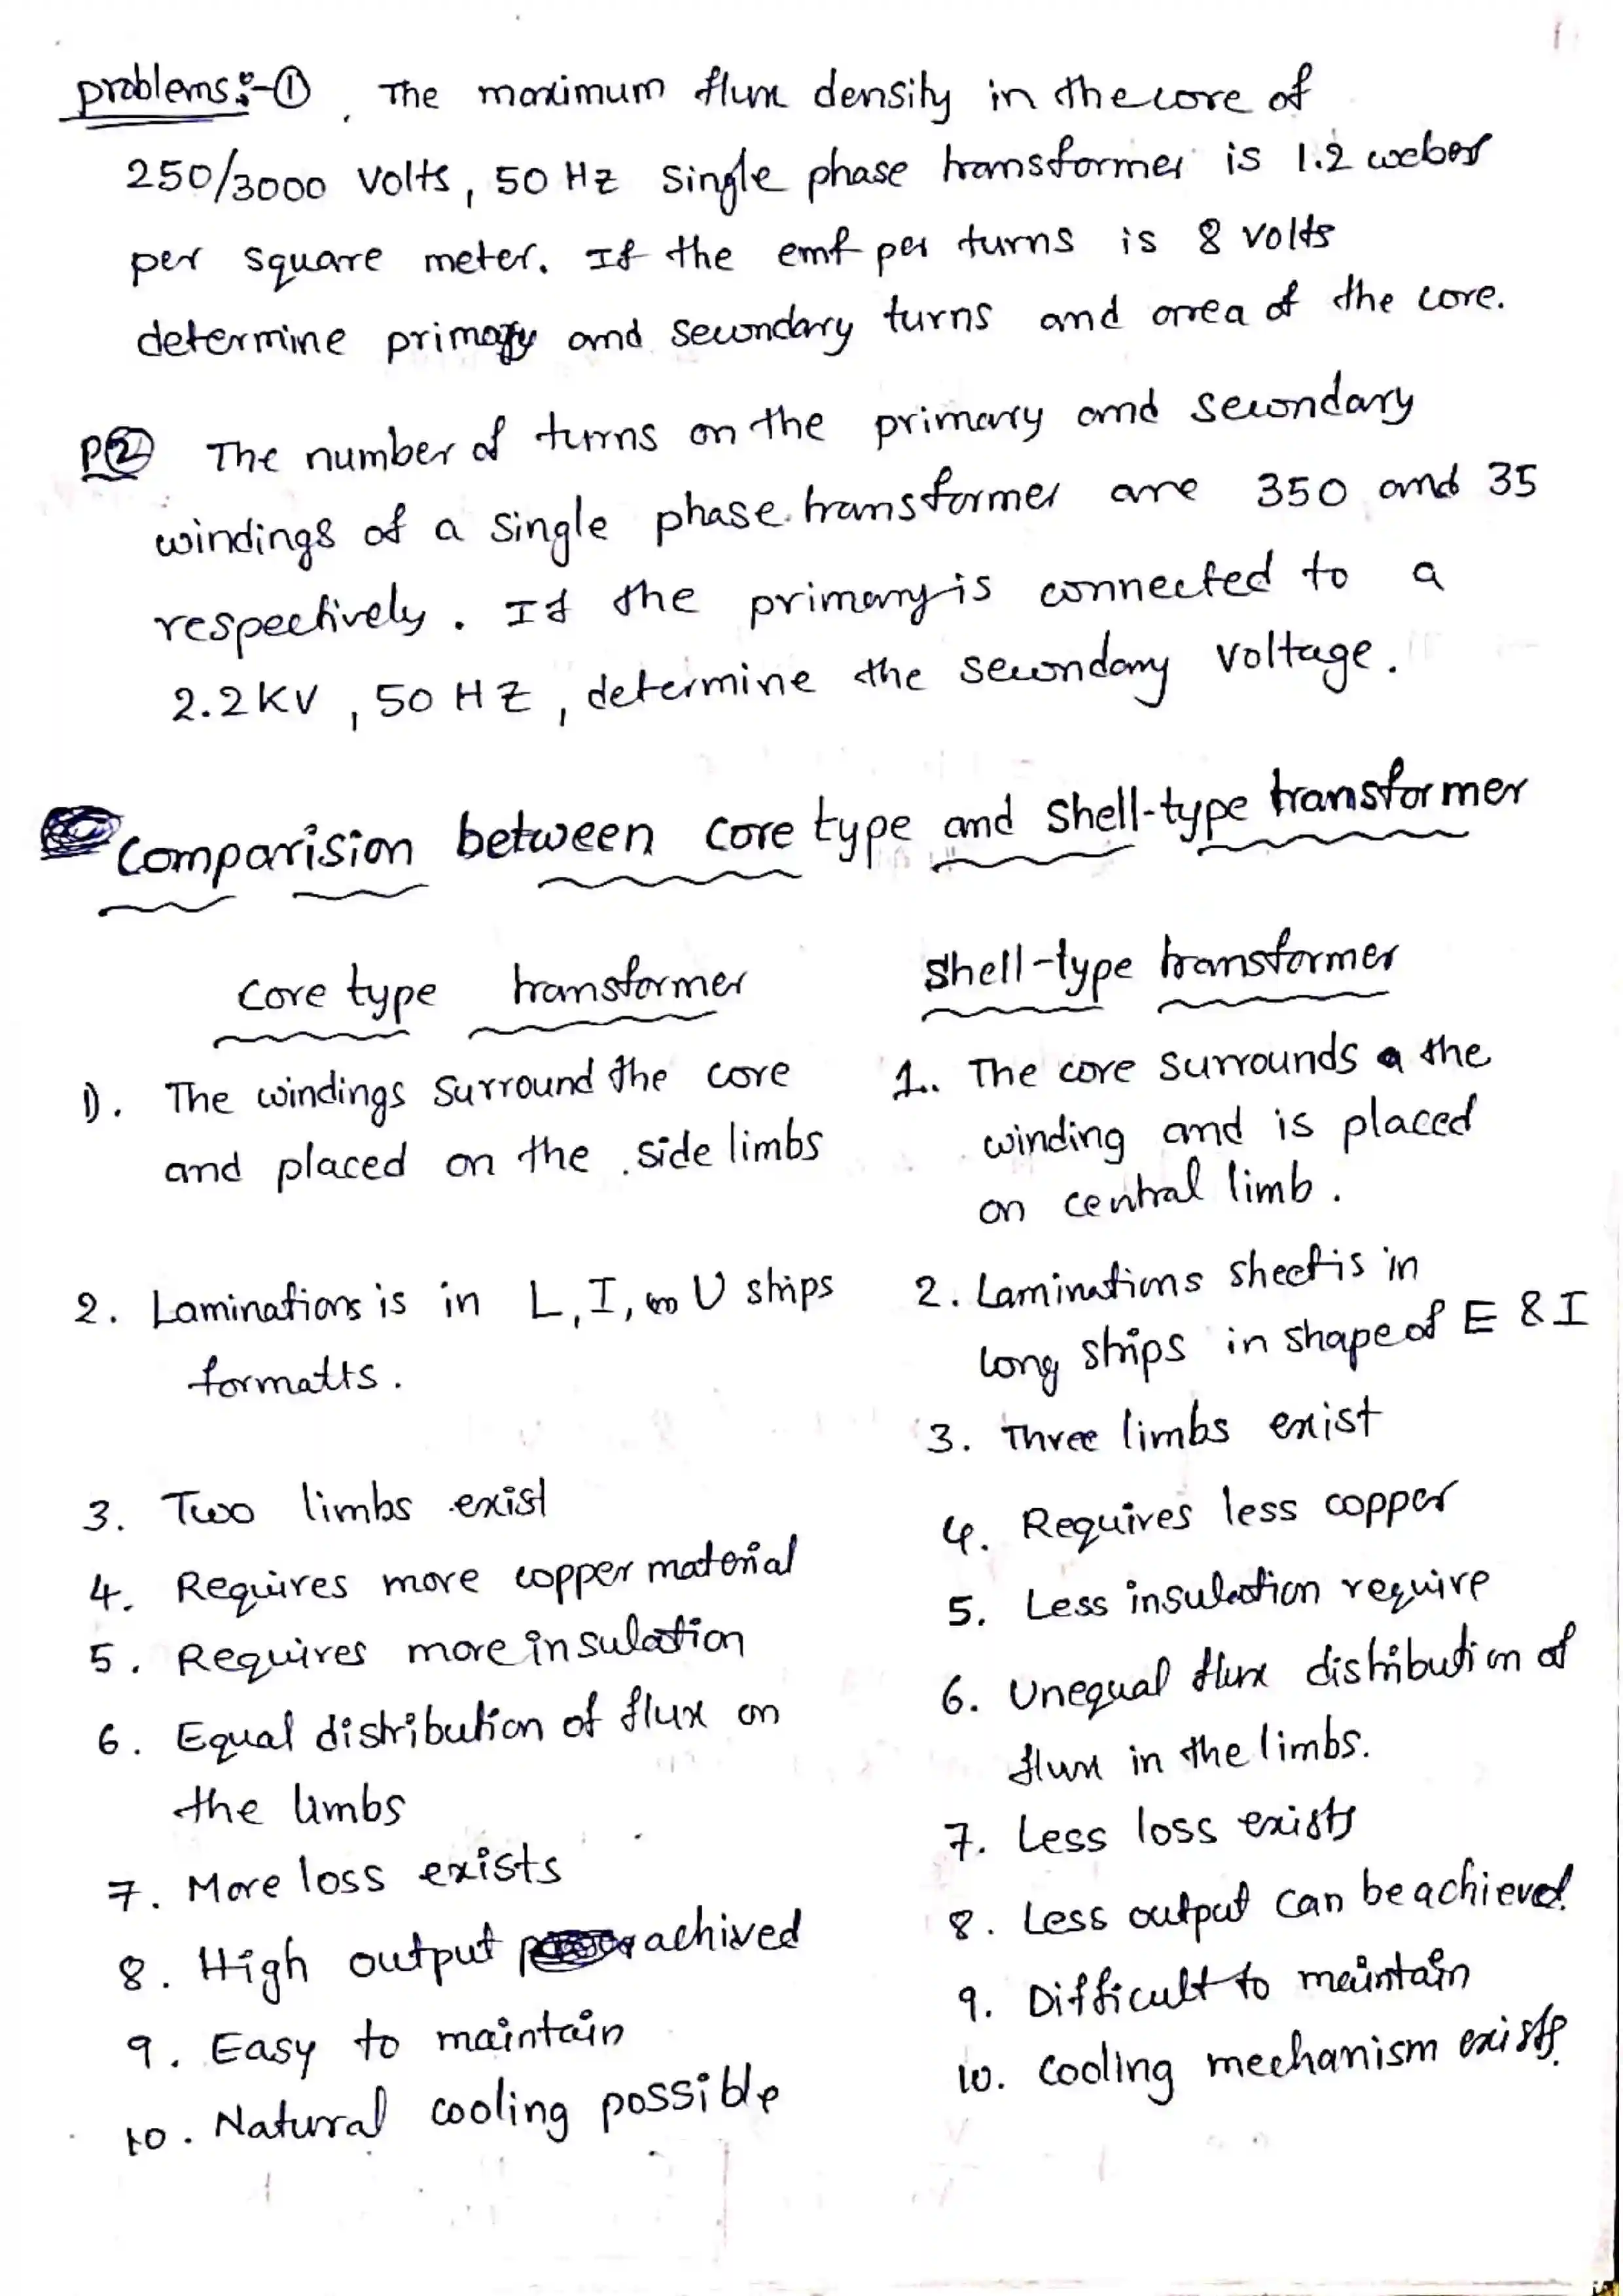 problems:-① The maximum flux density in the core of
250/3000 Volts, 50 Hz single phase transformer is 1.2 weber
per square meter. If the emf per turns is 8 volts
determine primary and secondary turns and area of the core.
P② The number of turns on the primary and secondary
windings of a single phase transformer are 350 and 35
respectively. If the primary is connected to a
2.2KV, 50 HZ, determine the secondary voltage.
Comparision between core type and shell-type transformer
core type transformer
1). The windings surround the core
and placed on the side limbs
2. Laminations is in L, I, U strips
formatts.
3. Two limbs exist
4. Requires more copper material
5. Requires more insulation
6. Equal distribution of flux on
the limbs
7. More loss exists
8. High output achived
9. Easy to maintain
10. Natural cooling possible
Shell-type transformer
1.. The core surrounds the
winding and is placed
on central limb.
2. Laminations sheet is in
long strips in shape of E & I
3. Three limbs exist
4. Requires less copper
5. Less insulation require
6. Unequal flux distribution of
flux in the limbs.
7. Less loss exists
8. Less output can be achieved
9. Difficult to maintain
10. Cooling mechanism exists.